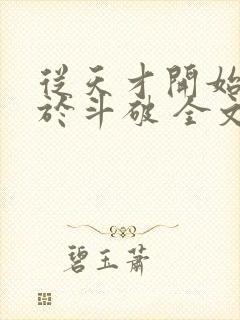 從天才開始
於斗破 全文
碧玉蕭